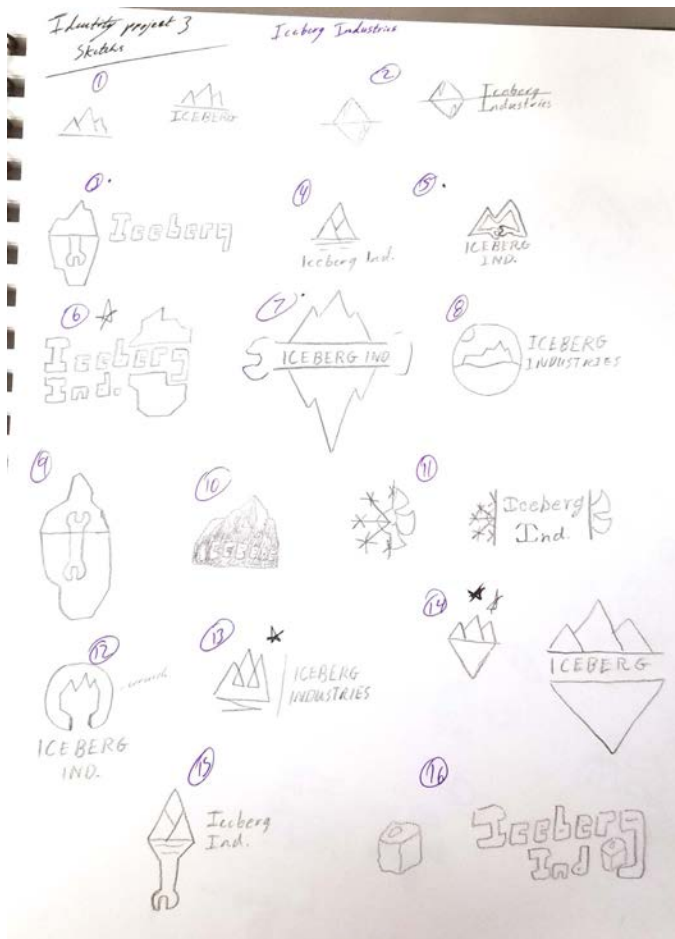 Identity project 3
Sketchs
Iceberg Industries
1
ICEBERG
2
Iceberg
Industries
3
Iceberg
4
Iceberg Ind.
5
ICEBERG
IND.
6
Iceberg
Ind.
7
ICEBERG IND
8
ICEBERG
INDUSTRIES
9
10
11
Iceberg
Ind.
12
ICEBERG
IND.
13
ICEBERG
INDUSTRIES
14
ICEBERG
15
Iceberg
Ind.
16
Iceberg
Ind